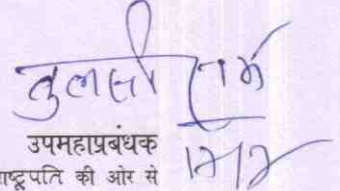 तुलसी राम
उपमहाप्रबंधक
राष्ट्रपति की ओर से